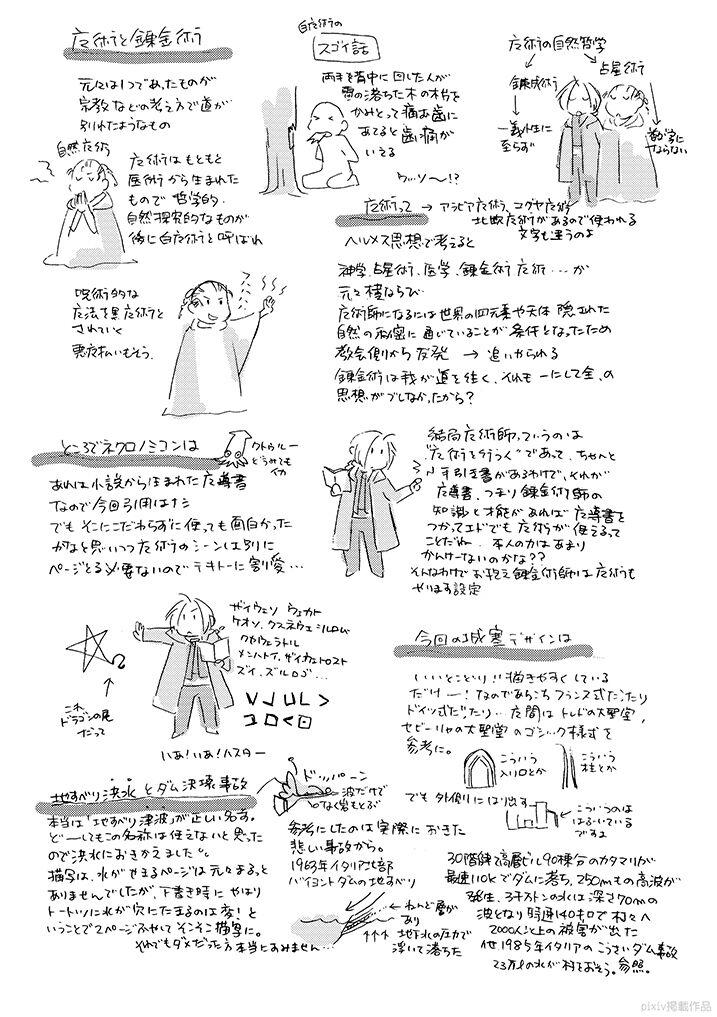 魔術と錬金術
元々は1つであったものが
宗教などの考え方で道が
別れたようなもの
自然魔術
魔術はもともと
医術から生まれた
もので哲学的
自然探究的なものが
後に白魔術と呼ばれ
呪術的な
魔法を黒魔術と
されていく
悪魔払いもそう.
白魔術の
スゴイ話
両手を背中に回した人が
雷の落ちた木の木片を
かみとって痛む歯に
あてると歯痛が
いえる
ウッソ〜!?
魔術の自然哲学
錬成術
占星術
一義性に
至らず
魔術って → アラビア魔術、ユダヤ魔術
北欧魔術があるので使われる
文字も違うのよ
ヘルメス思想で考えると
神学、占星術、医学、錬金術 魔術…が
元々横ならび
魔術師になるには世界の四元素や天体 隠された
自然の秘密に通じていることが条件となったため
教会側から反発 → 追いやられる
錬金術は我が道を往く、それも一にして全、の
思想がブレなかったから?
ところでネクロノミコンは
クトゥルー
どうみても
イカ
あれは小説から生まれた魔導書
なので今回引用はナシ
でもそこにこだわらずに使っても面白かった
かなと思いつつ魔術のシーンは別に
ページとる必要ないのでテキトーに割愛…
結局魔術師っていうのは
"魔術を行う"であって、ちゃんと
手引き書があるわけで、それが
魔導書、つまり錬金術師の
知識と才能があれば魔導書を
つかってエドでも魔術が使えるって
ことだね。本人の力はあまり
かんけーないのかな??
そんなわけでお抱え錬金術師は魔術も
やります設定
これ
ドラゴンの尾
だって
ザイウェソ ウェカト
ケオソ、クスネウェ=ルロム
クセウェラトル
メンハトイ、ザイウェトロスト
ズイ、ズルロゴ…
いあ!いあ!ハスター
今回の城塞デザインは
いいとこどり!!描きやすくしている
だけー!なのであちこちフランス式だったり
ドイツ式だったり…広間はトレドの大聖堂,
セビーリャの大聖堂のゴシック様式を
参考に。
こういう
入り口とか
こういう
柱とか
でも外側にはり出す
こういうのは
はぶいている
ですよ
地すべり洪水とダム決壊事故
本当は「地すべり津波」が正しい名す。
どーしてもこの名称は使えないと思った
ので洪水におきかえました。
描写は、水がせまるページは元々まるっと
ありませんでしたが、下書き時にやはり
トートツに水が穴にたまるのは変!と
いうことで2ページふやしてそこそこ描写に。
それでもダメだった方本当にすみません…
ドッパーン
波だけで
なく岩もとぶ
参考にしたのは実際におきた
悲しい事故から。
1963年イタリア北部
バイヨントダムの地すべり
ねんど層が
あり
地下水の圧力で
浮いて落ちた
30階建て高層ビル90棟分のカタマリが
最速110kでダムに落ち、250mもの高波が
発生、3千万トンの水は深さ70mの
波となり時速140キロで村々へ
2000人以上の被害が出た
他1985年イタリアのこうさいダム事故
23万ℓの水が村をおそう。参照。
pixiv掲載作品